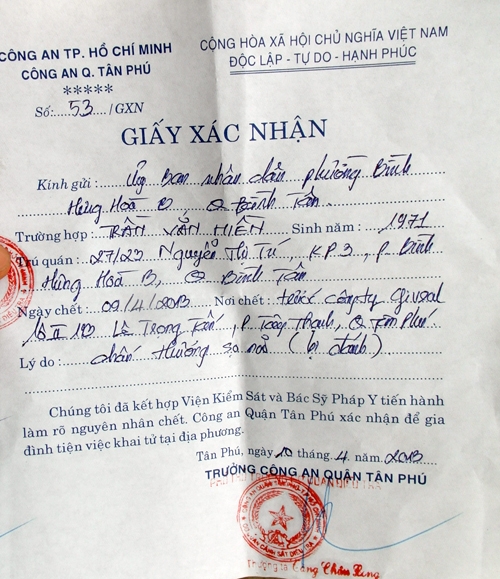 CÔNG AN TP. HỒ CHÍ MINH
CÔNG AN Q. TÂN PHÚ
*****
Số:.....53..../GXN
CỘNG HÒA XÃ HỘI CHỦ NGHĨA VIỆT NAM
ĐỘC LẬP - TỰ DO - HẠNH PHÚC
GIẤY XÁC NHẬN
Kính gửi : Ủy Ban nhân dân phường Bình
Hưng Hoà B, Q Bình Tân
Trường hợp : TRẦN VĂN HIỀN Sinh năm : 1971
Trú quán : 27/23 Nguyễn Thị Tú, KP3, P Bình
Hưng Hoà B, Q Bình Tân
Ngày chết : 09/4/2013 Nơi chết : trước công ty
Lô II 19B Lê Trọng Tấn, P Tây Thạnh, Q Tân Phú
Lý do : chấn thương sọ não (bị đánh)
Chúng tôi đã kết hợp Viện Kiểm Sát và Bác Sỹ Pháp Y tiến hành
làm rõ nguyên nhân chết. Công an Quận Tân Phú xác nhận để gia
đình tiện việc khai tử tại địa phương.
Tân Phú, ngày 10 tháng 4 năm 2013
TRƯỞNG CÔNG AN QUẬN TÂN PHÚ